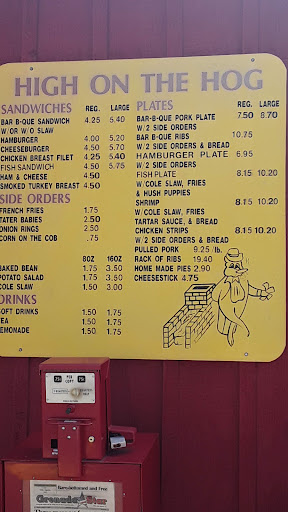 HIGH ON THE HOG
SANDWICHES REG. LARGE
BAR B-QUE SANDWICH 4.25 5.40
W/OR W/O SLAW
HAMBURGER 4.00 5.20
CHEESEBURGER 4.50 5.70
CHICKEN BREAST FILET 4.25 5.40
FISH SANDWICH 4.50 5.75
HAM & CHEESE 4.50
SMOKED TURKEY BREAST 4.50
SIDE ORDERS
FRENCH FRIES .75
TATER BABIES 2.50
ONION RINGS 2.50
CORN ON THE COB .75
8OZ 16OZ
BAKED BEAN 1.75 3.50
POTATO SALAD 1.75 3.50
COLE SLAW 1.50 3.00
DRINKS
SOFT DRINKS 1.50 1.75
TEA 1.50 1.75
LEMONADE 1.50 1.75
PLATES REG. LARGE
BAR-B-QUE PORK PLATE 7.50 8.70
W/2 SIDE ORDERS
BAR-B-QUE RIBS 10.75
W/2 SIDE ORDERS & BREAD
HAMBURGER PLATE 6.95
W/2 SIDE ORDERS
FISH PLATE 8.15 10.20
W/COLE SLAW, FRIES
& HUSH PUPPIES
SHRIMP 8.15 10.20
W/COLE SLAW, FRIES
TARTAR SAUCE, & BREAD
CHICKEN STRIPS 8.15 10.20
W/2 SIDE ORDERS & BREAD
PULLED PORK 9.25 /lb.
RACK OF RIBS 19.40
HOME MADE PIES 2.90
CHEESESTICK 4.75
Grenada Star